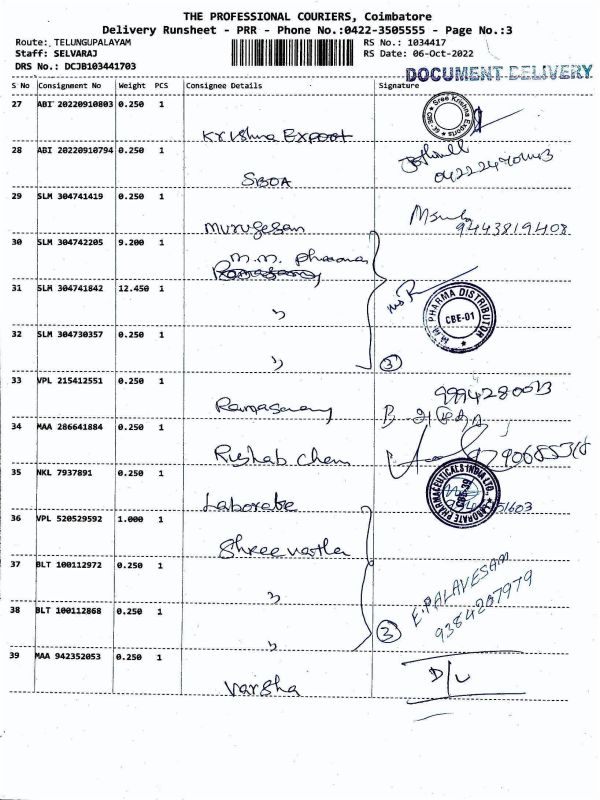 THE PROFESSIONAL COURIERS, Coimbatore
Delivery Runsheet - PRR - Phone No.:0422-3505555 - Page No.:3
Route: TELUNGUPALAYAM RS No.: 1034417
Staff: SELVARAJ RS Date: 06-Oct-2022
DRS No.: DCJB103441703
DOCUMENT DELIVERY
S No Consignment No Weight PCS Consignee Details Signature
27 ABI 20220910803 0.250 1
Sree Krishna Exports
Krishna Expoot
28 ABI 20220910794 0.250 1
SBOA
29 SLM 304741419 0.250 1
Murugesan 9443819408
30 SLM 304742205 9.200 1
M.M. Pharma
Ramasamy
31 SLM 304741842 12.450 1
"
M.M. PHARMA DISTRIBUTOR
CBE-01
32 SLM 304730357 0.250 1
" 3
33 VPL 215412551 0.250 1
Ramasamy
34 MAA 286641884 0.250 1
Rishab Chem
35 NKL 7937891 0.250 1
LABORATE PHARMACEUTICALS INDIA LTD.
Laborate
36 VPL 520529592 1.000 1
Shreevatsa
37 BLT 100112972 0.250 1
"
E. PALAVESAM
9384207979
38 BLT 100112868 0.250 1
" 3
39 MAA 942352053 0.250 1
D/L
Varsha